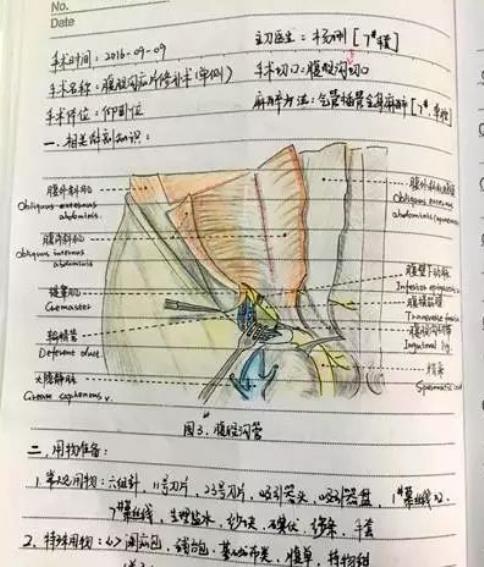 No.
Date
手术时间：2016-09-09
主刀医生：杨刚 [7#套]
手术名称：腹股沟疝片修补术(单侧)
手术切口：腹股沟切口
手术体位：仰卧位
麻醉方法：气管插管全身麻醉 [7#,单腔]
一、相关解剖知识：
腹外斜肌
Obliquus externus
abdominis
腹外斜肌腱膜
Obliquus externus
abdominis aponeurosis
腹内斜肌
Obliquus internus
abdominis
腹壁下动脉
Inferior epigastric
提睾肌
Cremaster
腹横筋膜
Transverse fascia
腹股沟韧带
Inguinal lig.
输精管
Deferent duct
大隐静脉
Great saphenous v.
精索
Spermatic cord
图3. 腹股沟管
二、用物准备：
1. 常规用物：六组针，11号刀片，23号刀片，吸引器头，吸引器盘，1#慕丝线x2，
7#慕丝线，生理盐水，纱布，碘伏，绵条，手套
2. 特殊用物：小阑尾包，辅包，基础布类，腹单，特物组